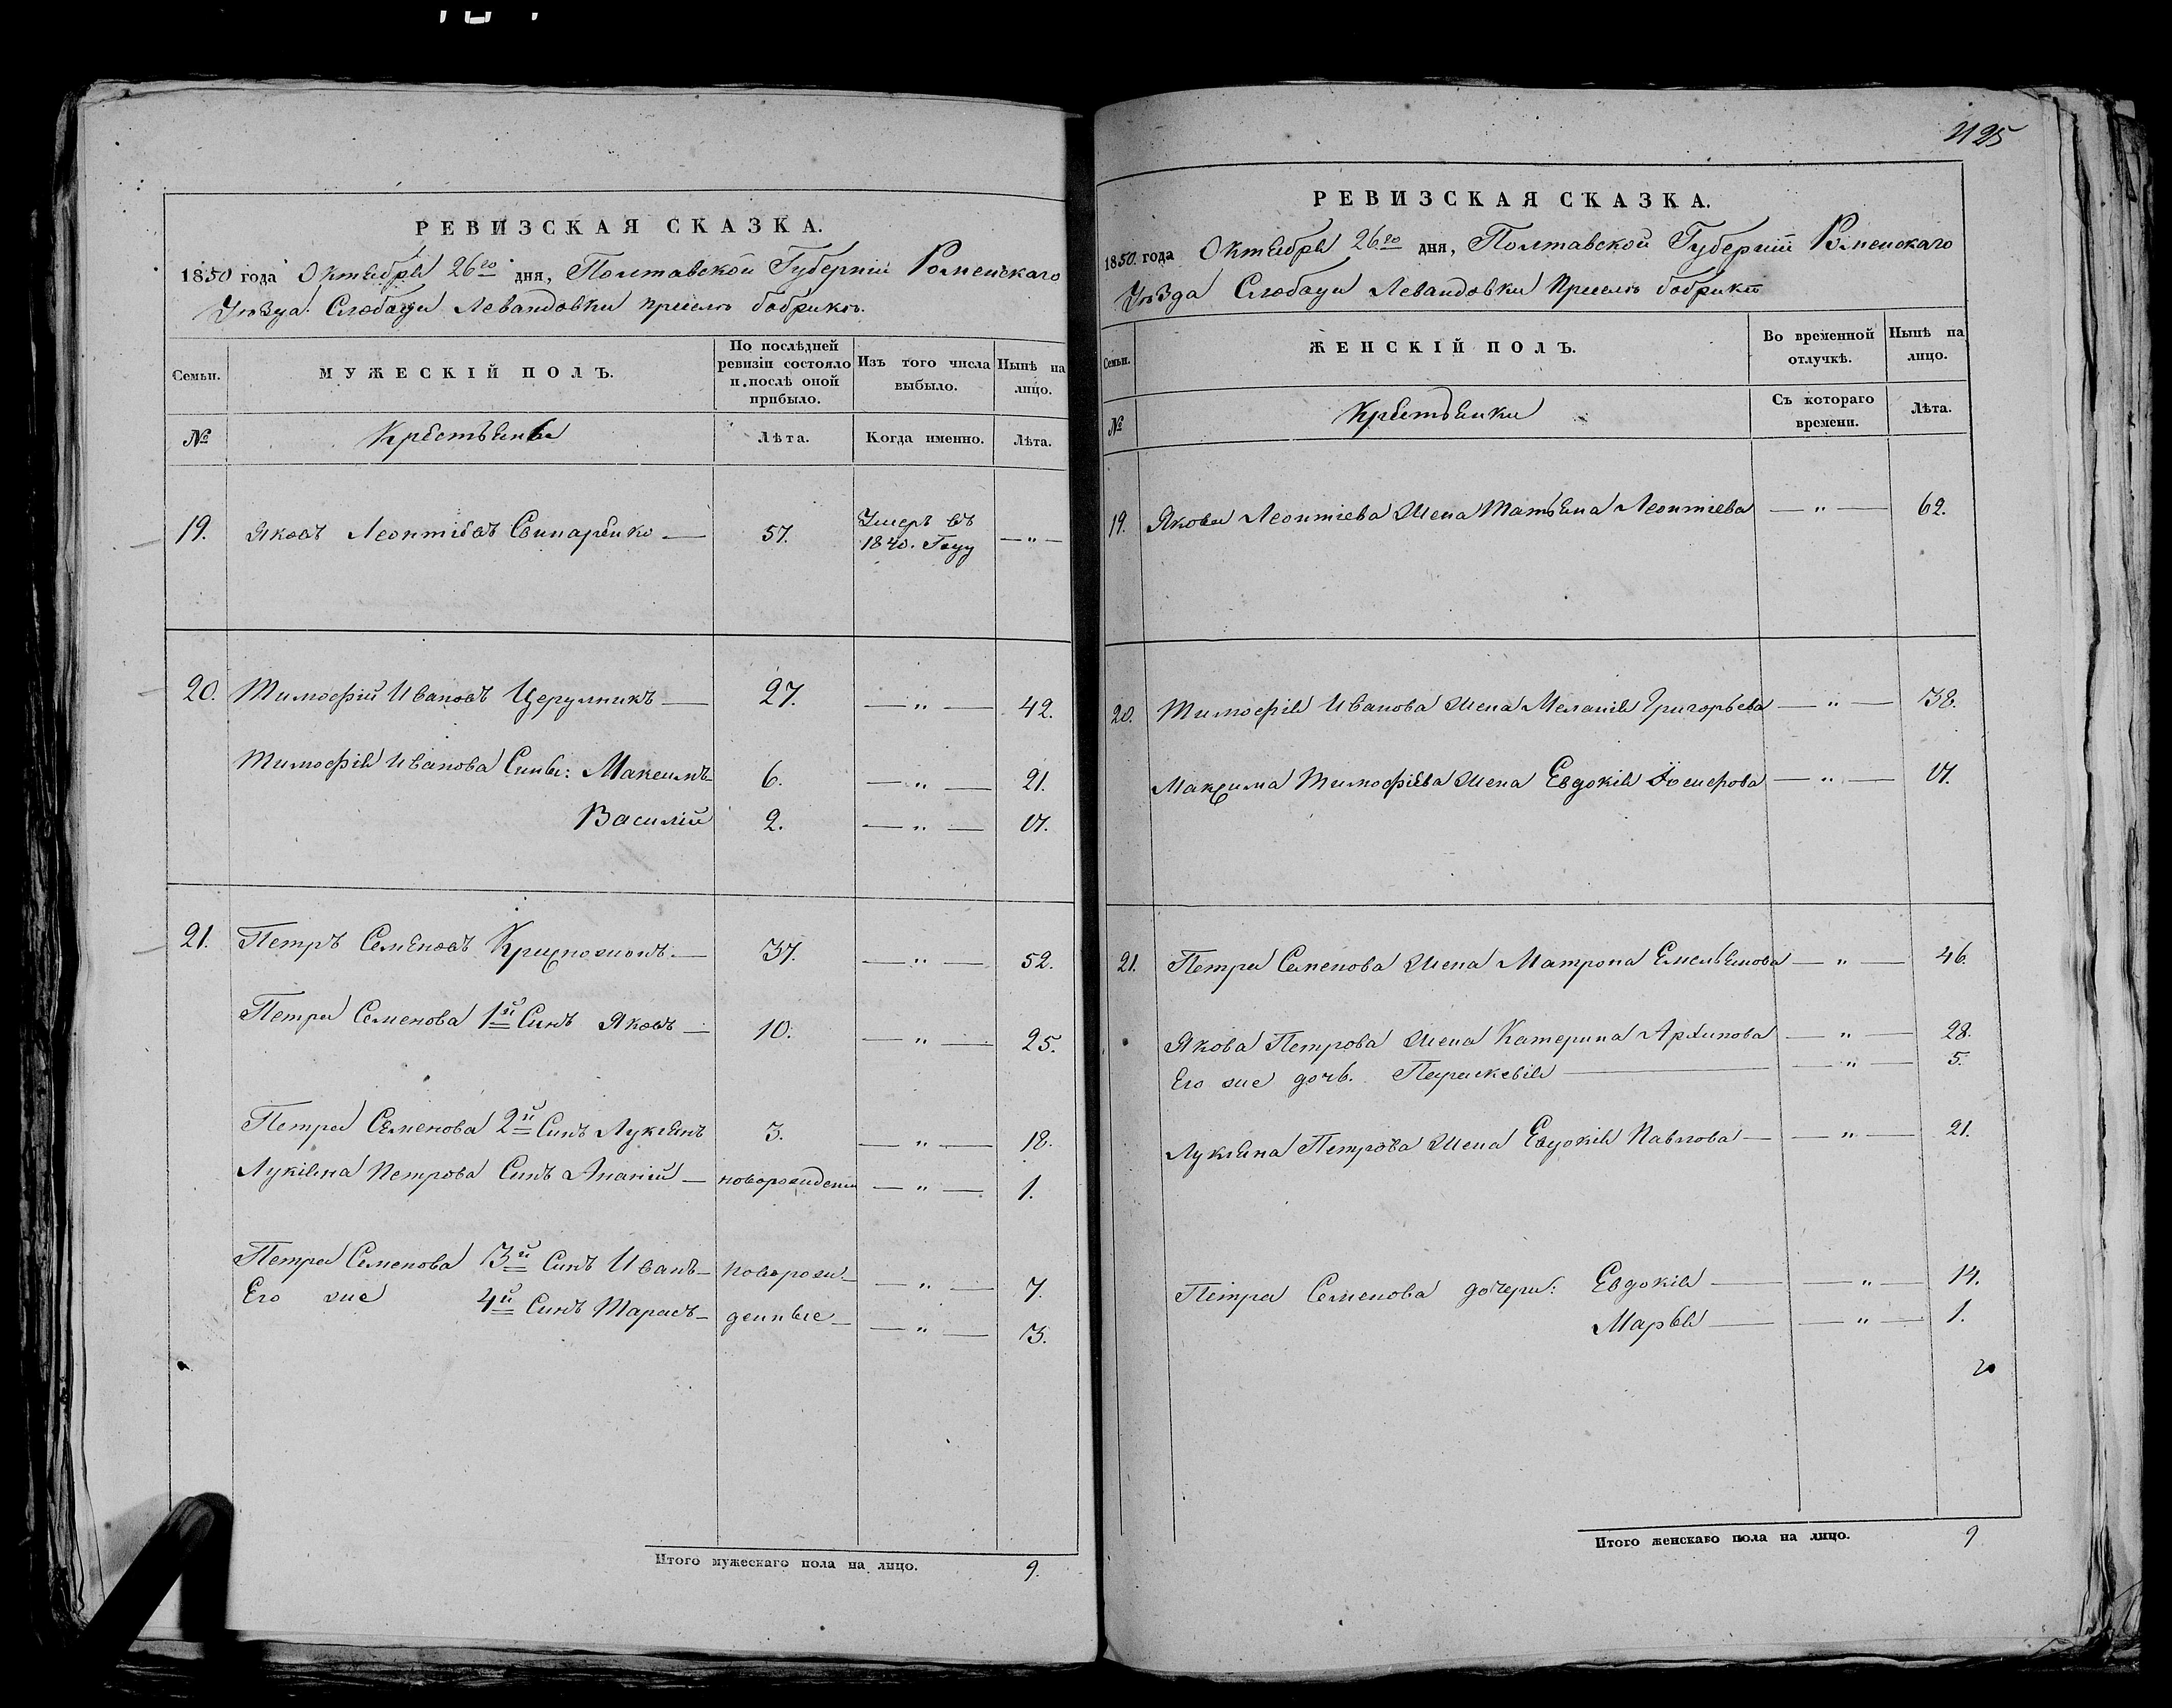 РЕВИЗСКАЯ СКАЗКА.
1850 года Октября 26го дня, Полтавской Губерніи Роменскаго
Уѣзда Слободи Левандовки приселю бобрикѣ.
Семьи. МУЖЕСКІЙ ПОЛЪ. По послѣдней ревизіи состояло и послѣ оной прибыло. Изъ того числа выбыло. Нынѣ на лицо.
№ Крестьяны Лѣта. Когда именно. Лѣта.
19. Яковъ Леонтіевъ Свинаренко — 57. Умеръ въ 1840. Году — „ —
20. Тимофій Ивановъ Церулникъ — 27. — „ — 42.
Тимофія Иванова Сины: Максимъ 6. — „ — 21.
Василій 2. — „ — 17.
21. Петръ Семеновъ — 37. — „ — 52.
Петра Семенова 1й Синъ Яковъ — 10. — „ — 25.
Петра Семенова 2й Синъ Лукіянъ 3. — „ — 18.
Лукіяна Петрова Синъ Ананій — новорожденн — „ — 1.
Петра Семенова 3й Синъ Иванъ — новорож- — „ — 7.
Его же 4й Синъ Тарасъ — денные — — „ — 3.
Итого мужескаго пола на лицо. 9.
1125
РЕВИЗСКАЯ СКАЗКА.
1850 года Октября 26го дня, Полтавской Губерніи Роменскаго
Уѣзда Слободи Левандовки приселю бобрикѣ
Семьи. ЖЕНСКІЙ ПОЛЪ. Во временной отлучкѣ. Нынѣ на лицо.
№ Крестьянки Съ котораго времени. Лѣта.
19. Якова Леонтіева жена Татьяна Леонтіева — „ — 62.
20. Тимофія Иванова жена Меланія Григорьева — „ — 38.
Максима Тимофіева жена Евдокія — „ — 17.
21. Петра Семенова жена Матрона Емельянова — „ — 46.
Якова Петрова жена Катерина Архипова — „ — 28.
Его же дочь. Параскевія — „ — 5.
Лукіяна Петрова жена Евдокія Павлова — — „ — 21.
Петра Семенова дочери: Евдокія — — „ — 14.
Марья — — „ — 1.
Итого женскаго пола на лицо. 9